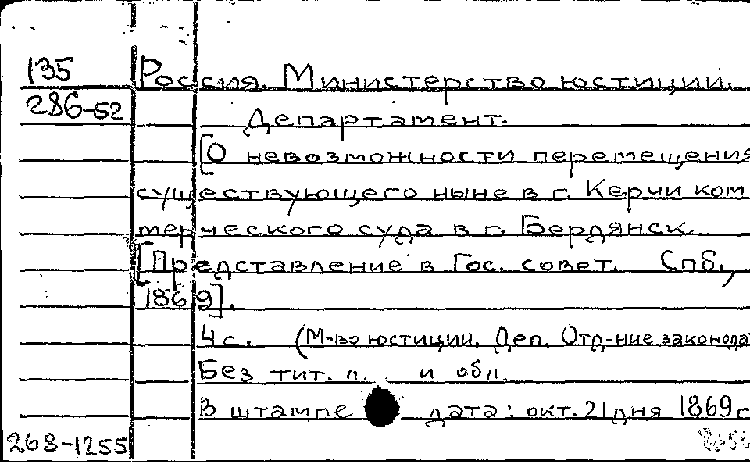 135 Россия. Министерство юстиции.
286-52 Департамент.
[О невозможности перемещения
существующего ныне в г. Керчи ком
мерческого суда в г. Бердянск.
[Представление в Гос. совет. Спб.,
1869].
4 с. (М-во юстиции. Деп. Отд-ние законода
Без тит. л. и обл.
В штампе дата: окт. 21 дня 1869 г
268-1255